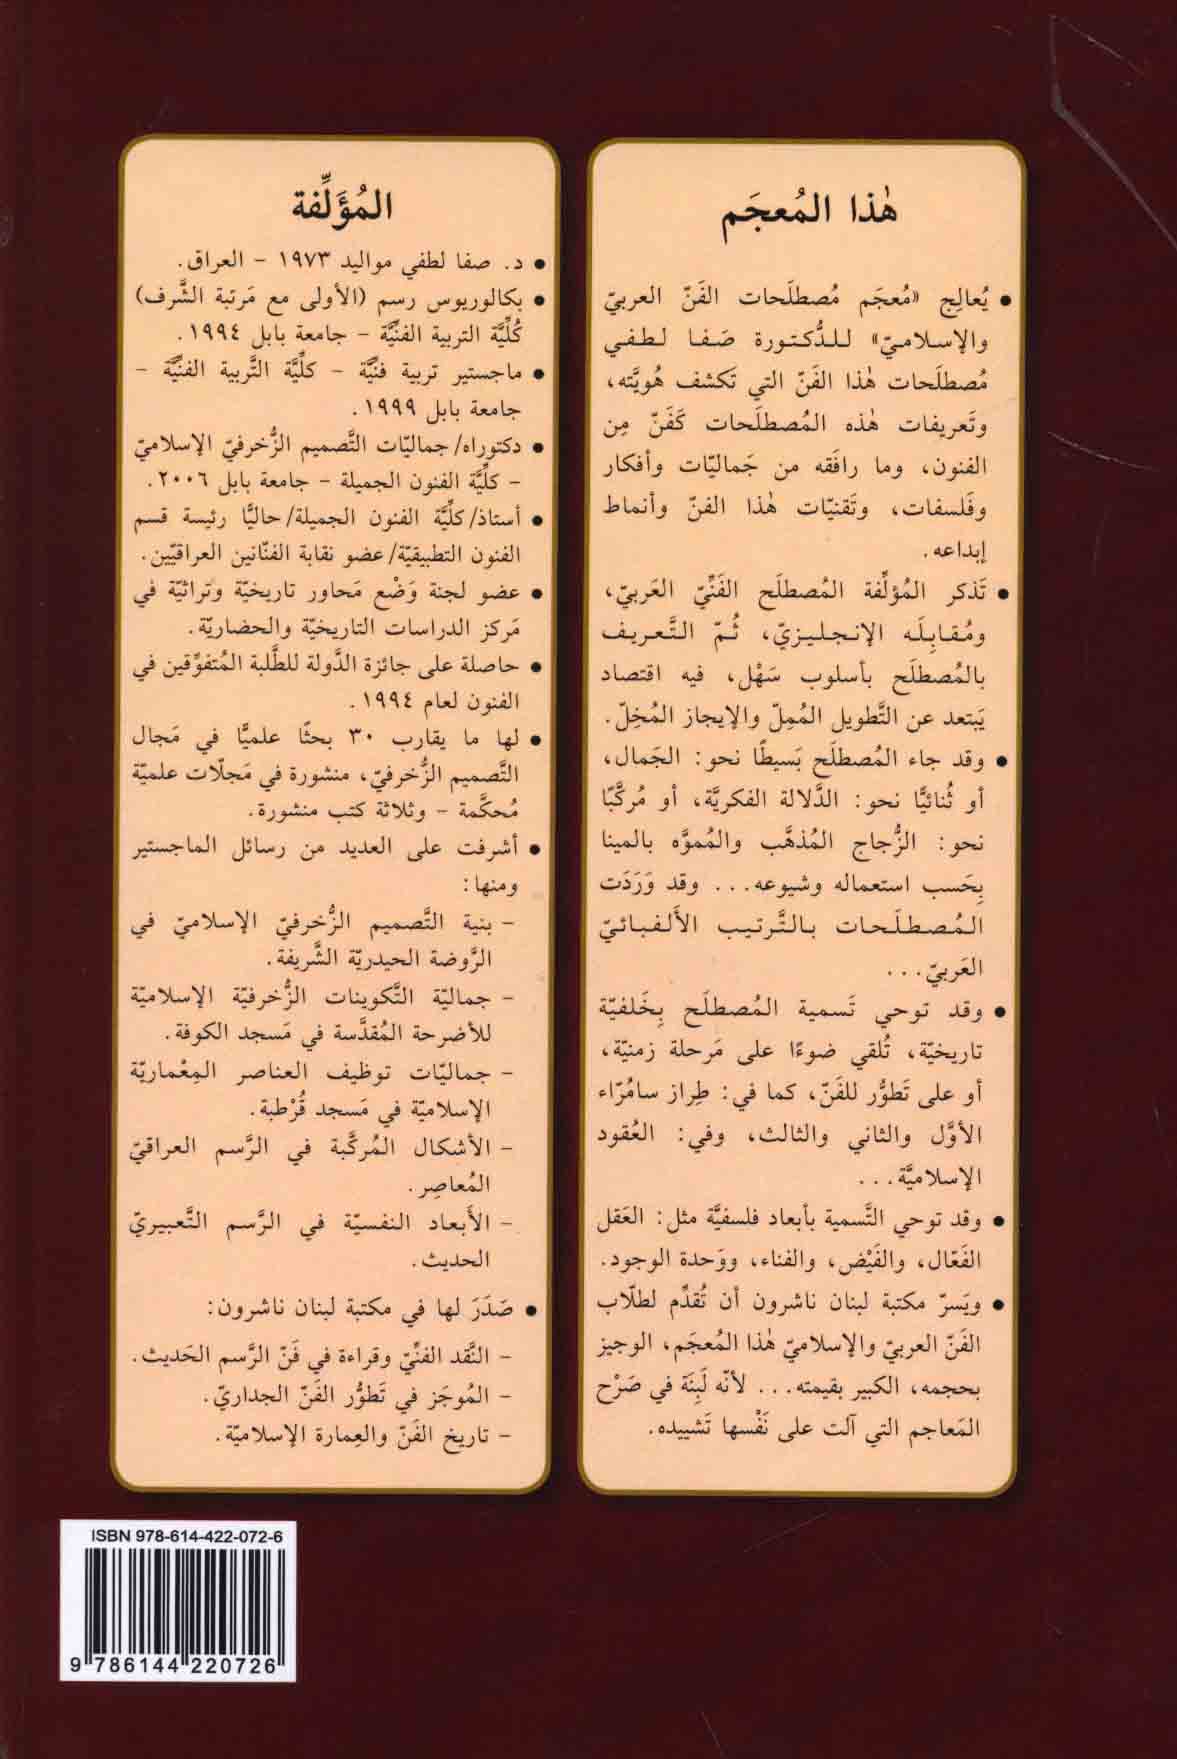 هٰذا المُعجَم
• يُعالِج «مُعجَم مُصطلَحات الفَنّ العربيّ
والإسلاميّ» للدُّكتورة صَفا لطفي
مُصطلَحات هٰذا الفَنّ التي تَكشف هُويَّته،
وتَعريفات هٰذه المُصطلَحات كَفَنّ مِن
الفنون، وما رافَقه من جَماليّات وأفكار
وفَلسفات، وتَقنيّات هٰذا الفنّ وأنماط
إبداعه.
• تَذكر المُؤلِّفة المُصطلَح الفَنِّيّ العَربيّ،
ومُقابِلَه الإنجليزيّ، ثُمّ التَّعريف
بالمُصطلَح بأسلوب سَهْل، فيه اقتصاد
يَبتعد عن التَّطويل المُمِلّ والإيجاز المُخِلّ.
• وقد جاء المُصطلَح بَسيطًا نحو: الجَمال،
أو ثُنائيًّا نحو: الدَّلالة الفكريَّة، أو مُركَّبًا
نحو: الزُّجاج المُذهَّب والمُموَّه بالمينا
بِحَسب استعماله وشيوعه... وقد وَرَدَت
المُصطلَحات بالتَّرتيب الأَلفبائيّ
العَربيّ...
• وقد توحي تَسمية المُصطلَح بِخَلفيّة
تاريخيّة، تُلقي ضوءًا على مَرحلة زمنيّة،
أو على تَطوُّر للفَنّ، كما في: طِراز سامُرّاء
الأوَّل والثاني والثالث، وفي: العُقود
الإسلاميَّة...
• وقد توحي التَّسمية بأبعاد فلسفيَّة مثل: العَقل
الفَعّال، والفَيْض، والفناء، ووَحدة الوجود.
• ويَسرّ مكتبة لبنان ناشرون أن تُقدِّم لطلّاب
الفَنّ العربيّ والإسلاميّ هٰذا المُعجَم، الوجيز
بحجمه، الكبير بقيمته... لأنّه لَبِنَة في صَرْح
المَعاجم التي آلت على نَفْسها تَشييده.
المُؤَلِّفة
• د. صفا لطفي مواليد ١٩٧٣ - العراق.
• بكالوريوس رسم (الأولى مع مَرتبة الشَّرف)
كُلِّيَّة التربية الفنّيَّة - جامعة بابل ١٩٩٤.
• ماجستير تربية فنّيَّة - كلِّيَّة التَّربية الفنّيَّة -
جامعة بابل ١٩٩٩.
• دكتوراه/جماليّات التَّصميم الزُّخرفيّ الإسلاميّ
- كلِّيَّة الفنون الجميلة - جامعة بابل ٢٠٠٦.
• أستاذ/كلِّيَّة الفنون الجميلة/حاليًّا رئيسة قسم
الفنون التطبيقيّة/عضو نقابة الفنّانين العراقيّين.
• عضو لجنة وَضْع مَحاور تاريخيّة وتراثيّة في
مَركز الدراسات التاريخيّة والحضاريّة.
• حاصلة على جائزة الدَّولة للطَّلبة المُتفوِّقين في
الفنون لعام ١٩٩٤.
• لها ما يقارب ٣٠ بحثًا علميًّا في مَجال
التَّصميم الزُّخرفيّ، منشورة في مَجلّات علميّة
مُحكَّمة - وثلاثة كتب منشورة.
• أشرفت على العديد من رسائل الماجستير
ومنها:
- بنية التَّصميم الزُّخرفيّ الإسلاميّ في
الرَّوضة الحيدريّة الشَّريفة.
- جماليّة التَّكوينات الزُّخرفيّة الإسلاميّة
للأضرحة المُقدَّسة في مَسجد الكوفة.
- جماليّات توظيف العناصر المِعْماريّة
الإسلاميّة في مَسجد قُرْطبة.
- الأشكال المُركَّبة في الرَّسم العراقيّ
المُعاصِر.
- الأَبعاد النفسيّة في الرَّسم التَّعبيريّ
الحديث.
• صَدَرَ لها في مكتبة لبنان ناشرون:
- النَّقد الفنّيّ وقراءة في فَنّ الرَّسم الحَديث.
- المُوجَز في تَطوُّر الفَنّ الجداريّ.
- تاريخ الفَنّ والعِمارة الإسلاميّة.
ISBN 978-614-422-072-6
9 786144 220726